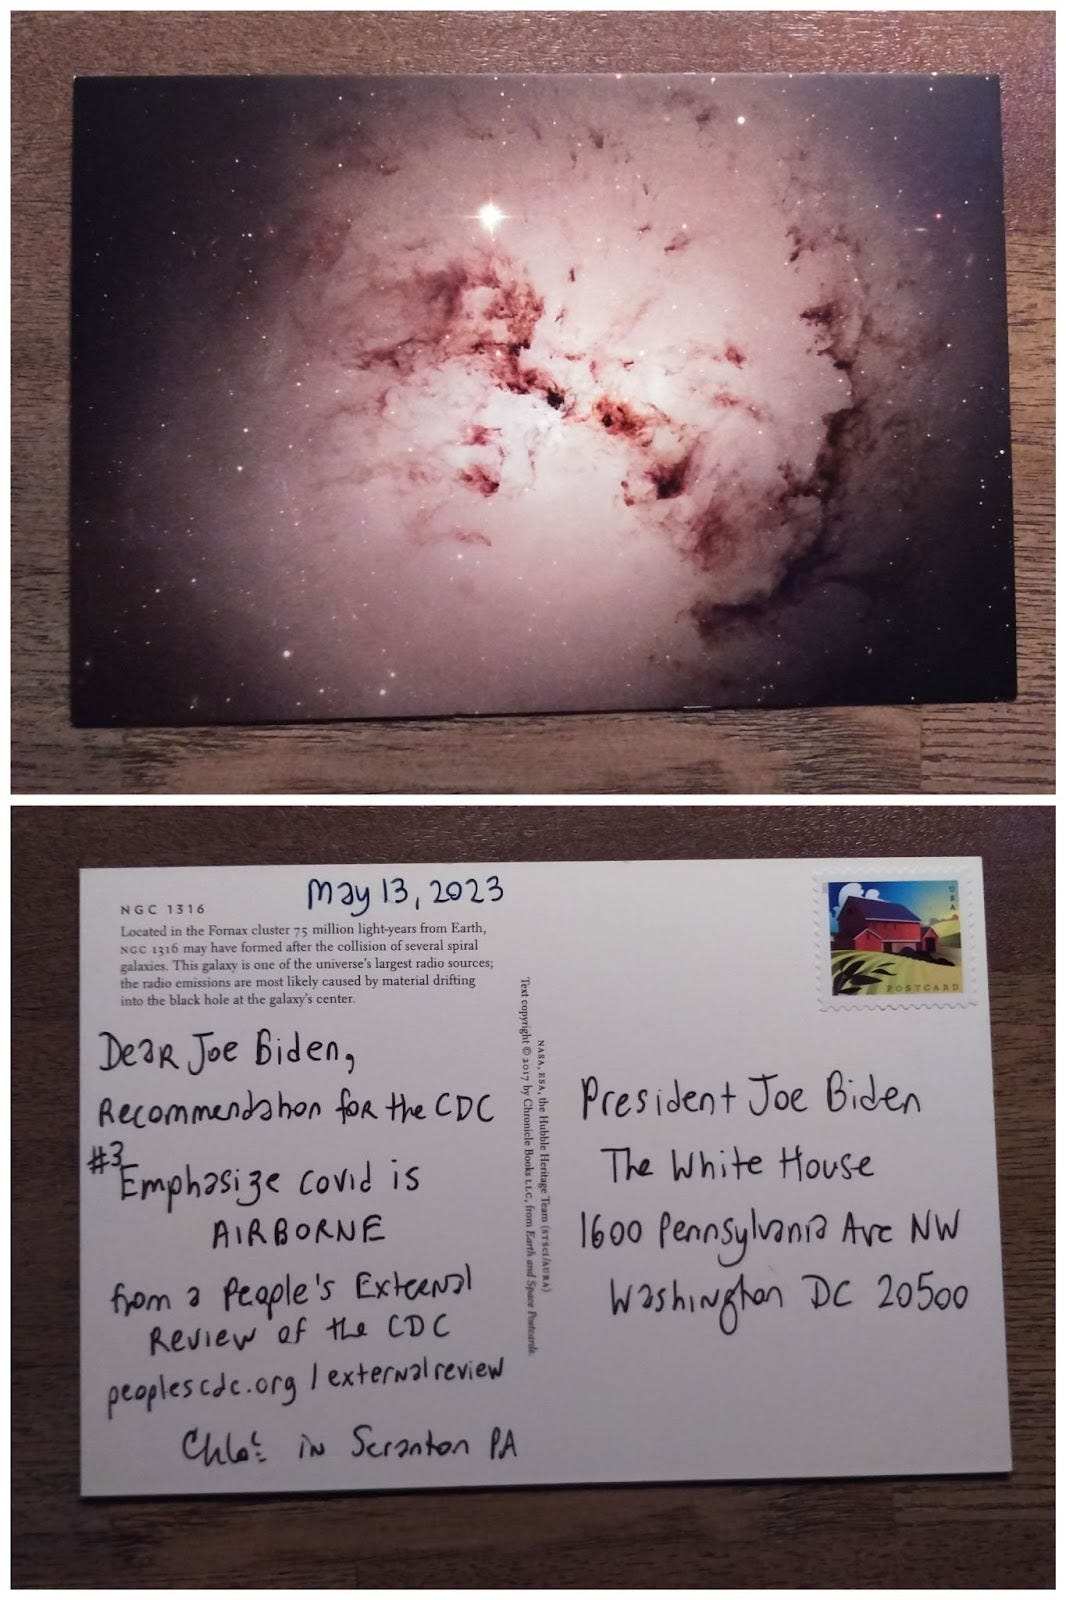 May 13, 2023
NGC 1316
Located in the Fornax cluster 75 million light-years from Earth,
NGC 1316 may have formed after the collision of several spiral
galaxies. This galaxy is one of the universe's largest radio sources;
the radio emissions are most likely caused by material drifting
into the black hole at the galaxy's center.
Dear Joe Biden,
Recommendation for the CDC
#3
Emphasize covid is
AIRBORNE
from a People's External
Review of the CDC
peoplescdc.org/externalreview
Chloë in Scranton PA
NASA, ESA, the Hubble Heritage Team (STSCI/AURA)
Text copyright © 2017 by Chronicle Books LLC, from Earth and Space Postcards.
USA
POSTCARD
President Joe Biden
The White House
1600 Pennsylvania Ave NW
Washington DC 20500